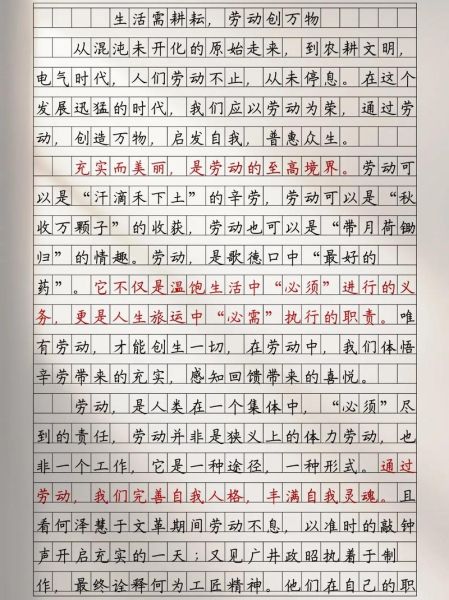 生活需耕耘，劳动创万物
从混沌未开化的原始走来，到农耕文明，
电气时代，人们劳动不止，从未停息。在这个
发展迅猛的时代，我们应以劳动为荣，通过劳
动，创造万物，启发自我，普惠众生。
充实而美丽，是劳动的至高境界。劳动可
以是“汗滴禾下土”的辛劳，劳动可以是“秋
收万颗子”的收获，劳动也可以是“带月荷锄
归”的情趣。劳动，是歌德口中“最好的
药”。它不仅是温饱生活中“必须”进行的义
务，更是人生旅运中“必需”执行的职责。唯
有劳动，才能创生一切，在劳动中，我们体悟
辛劳带来的充实，感知回馈带来的喜悦。
劳动，是人类在一个集体中，“必须”尽
到的责任，劳动并非是狭义上的体力劳动，也
非一个工作，它是一种途径，一种形式。通过
劳动，我们完善自我人格，丰满自我灵魂。且
看何泽慧于文革期间劳动不息，以准时的敲钟
声开启充实的一天；又见广井政昭执着于制
作，最终诠释何为工匠精神。他们在自己的职